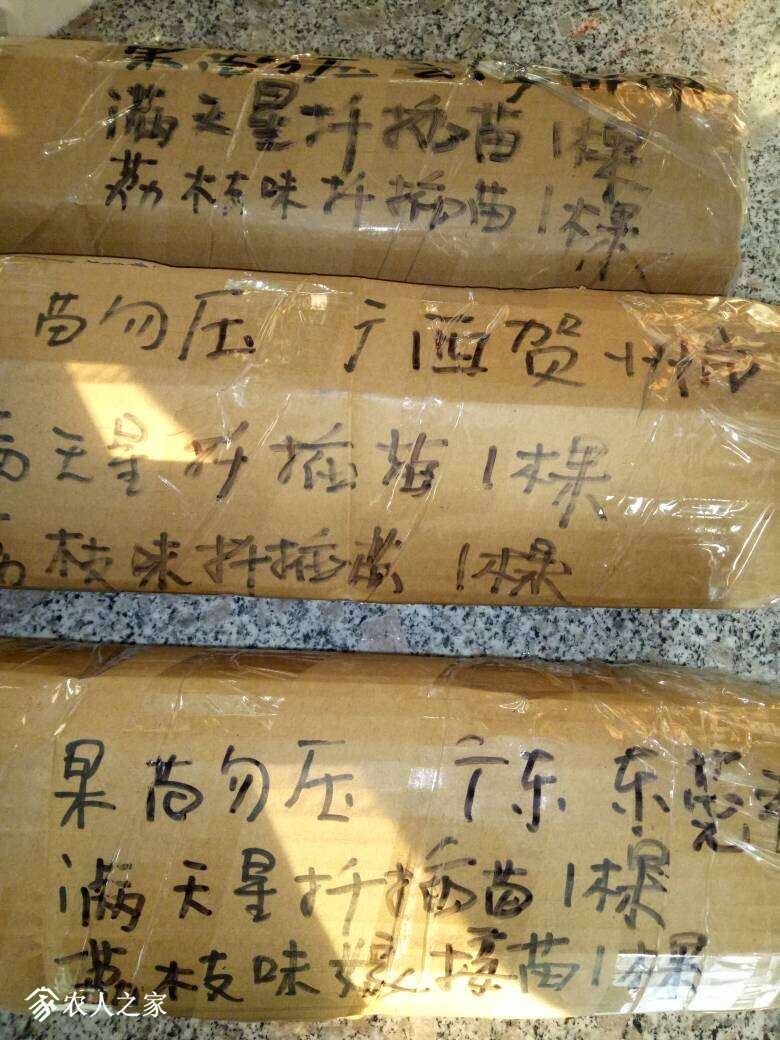 果苗勿压
满天星扦插苗1棵
荔枝味扦插苗1棵
苗勿压 广西贺州市
满天星扦插苗1棵
荔枝味扦插苗1棵
果苗勿压 广东东莞市
满天星扦插苗1棵
荔枝味嫁接苗1棵
农人之家